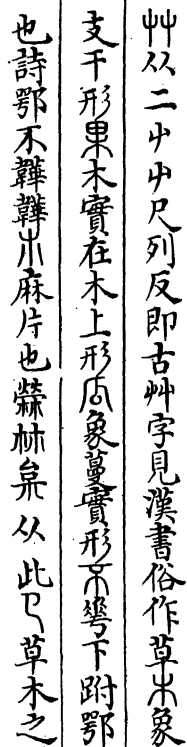 艸从二屮屮尺列反即古艸字見漢書俗作草木象
支干形果木實在木上形瓜象蔓實形不華下跗鄂
也詩鄂不韡韡朩麻片也檾林枲从此㔾草木之